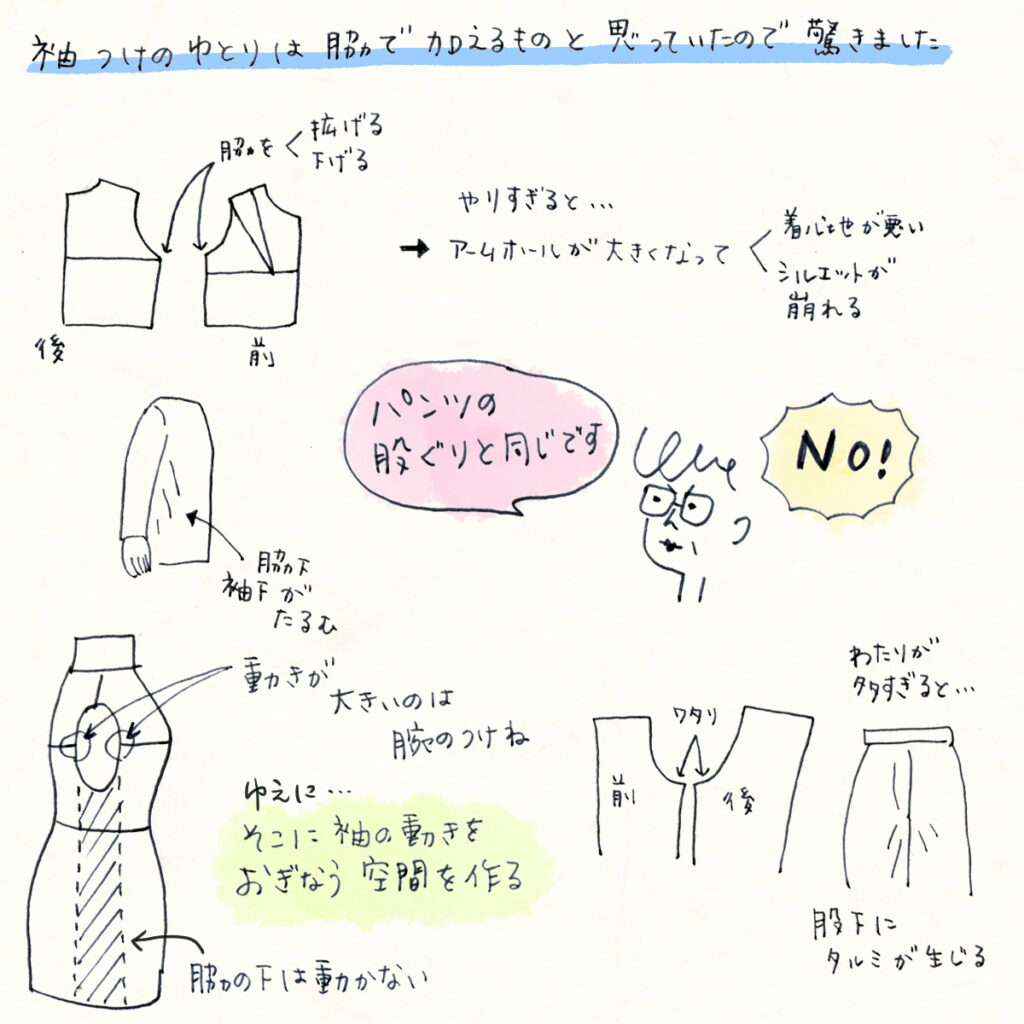 袖つけのゆとりは脇で加えるものと思っていたので驚きました
脇を
拡げる
下げる
後
前
やりすぎると…
→ アームホールが大きくなって
着心地が悪い
シルエットが
崩れる
パンツの
股ぐりと同じです
NO!
脇下
袖下が
たるむ
動きが
大きいのは
腕のつけね
ゆえに…
そこに袖の動きを
おぎなう空間を作る
脇の下は動かない
ワタリ
前
後
わたりが
多すぎると…
股下に
タルミが生じる